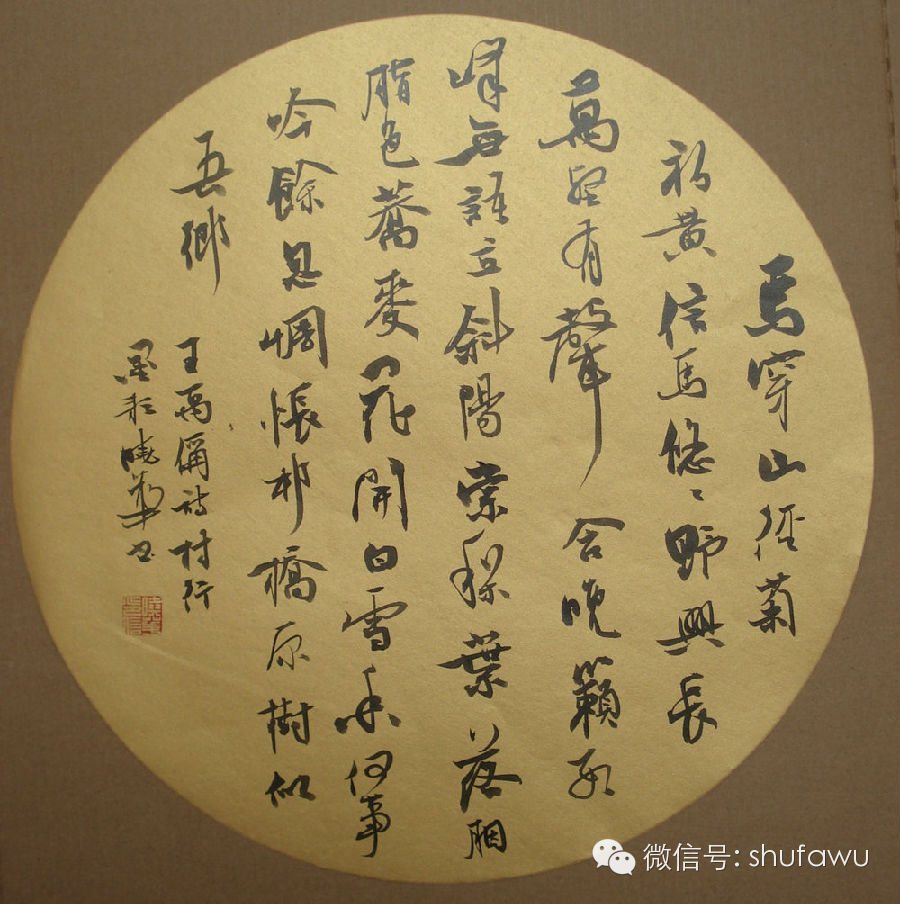 馬穿山徑菊
初黃信馬悠々野興長
萬壑有聲含晚籟數
峰無語立斜陽棠梨葉落胭
脂色蕎麥花開白雪香何事
吟餘忽惆悵邨橋原樹似
吾鄉
王禹偁詩村行
曉華书
微信号: shufawu